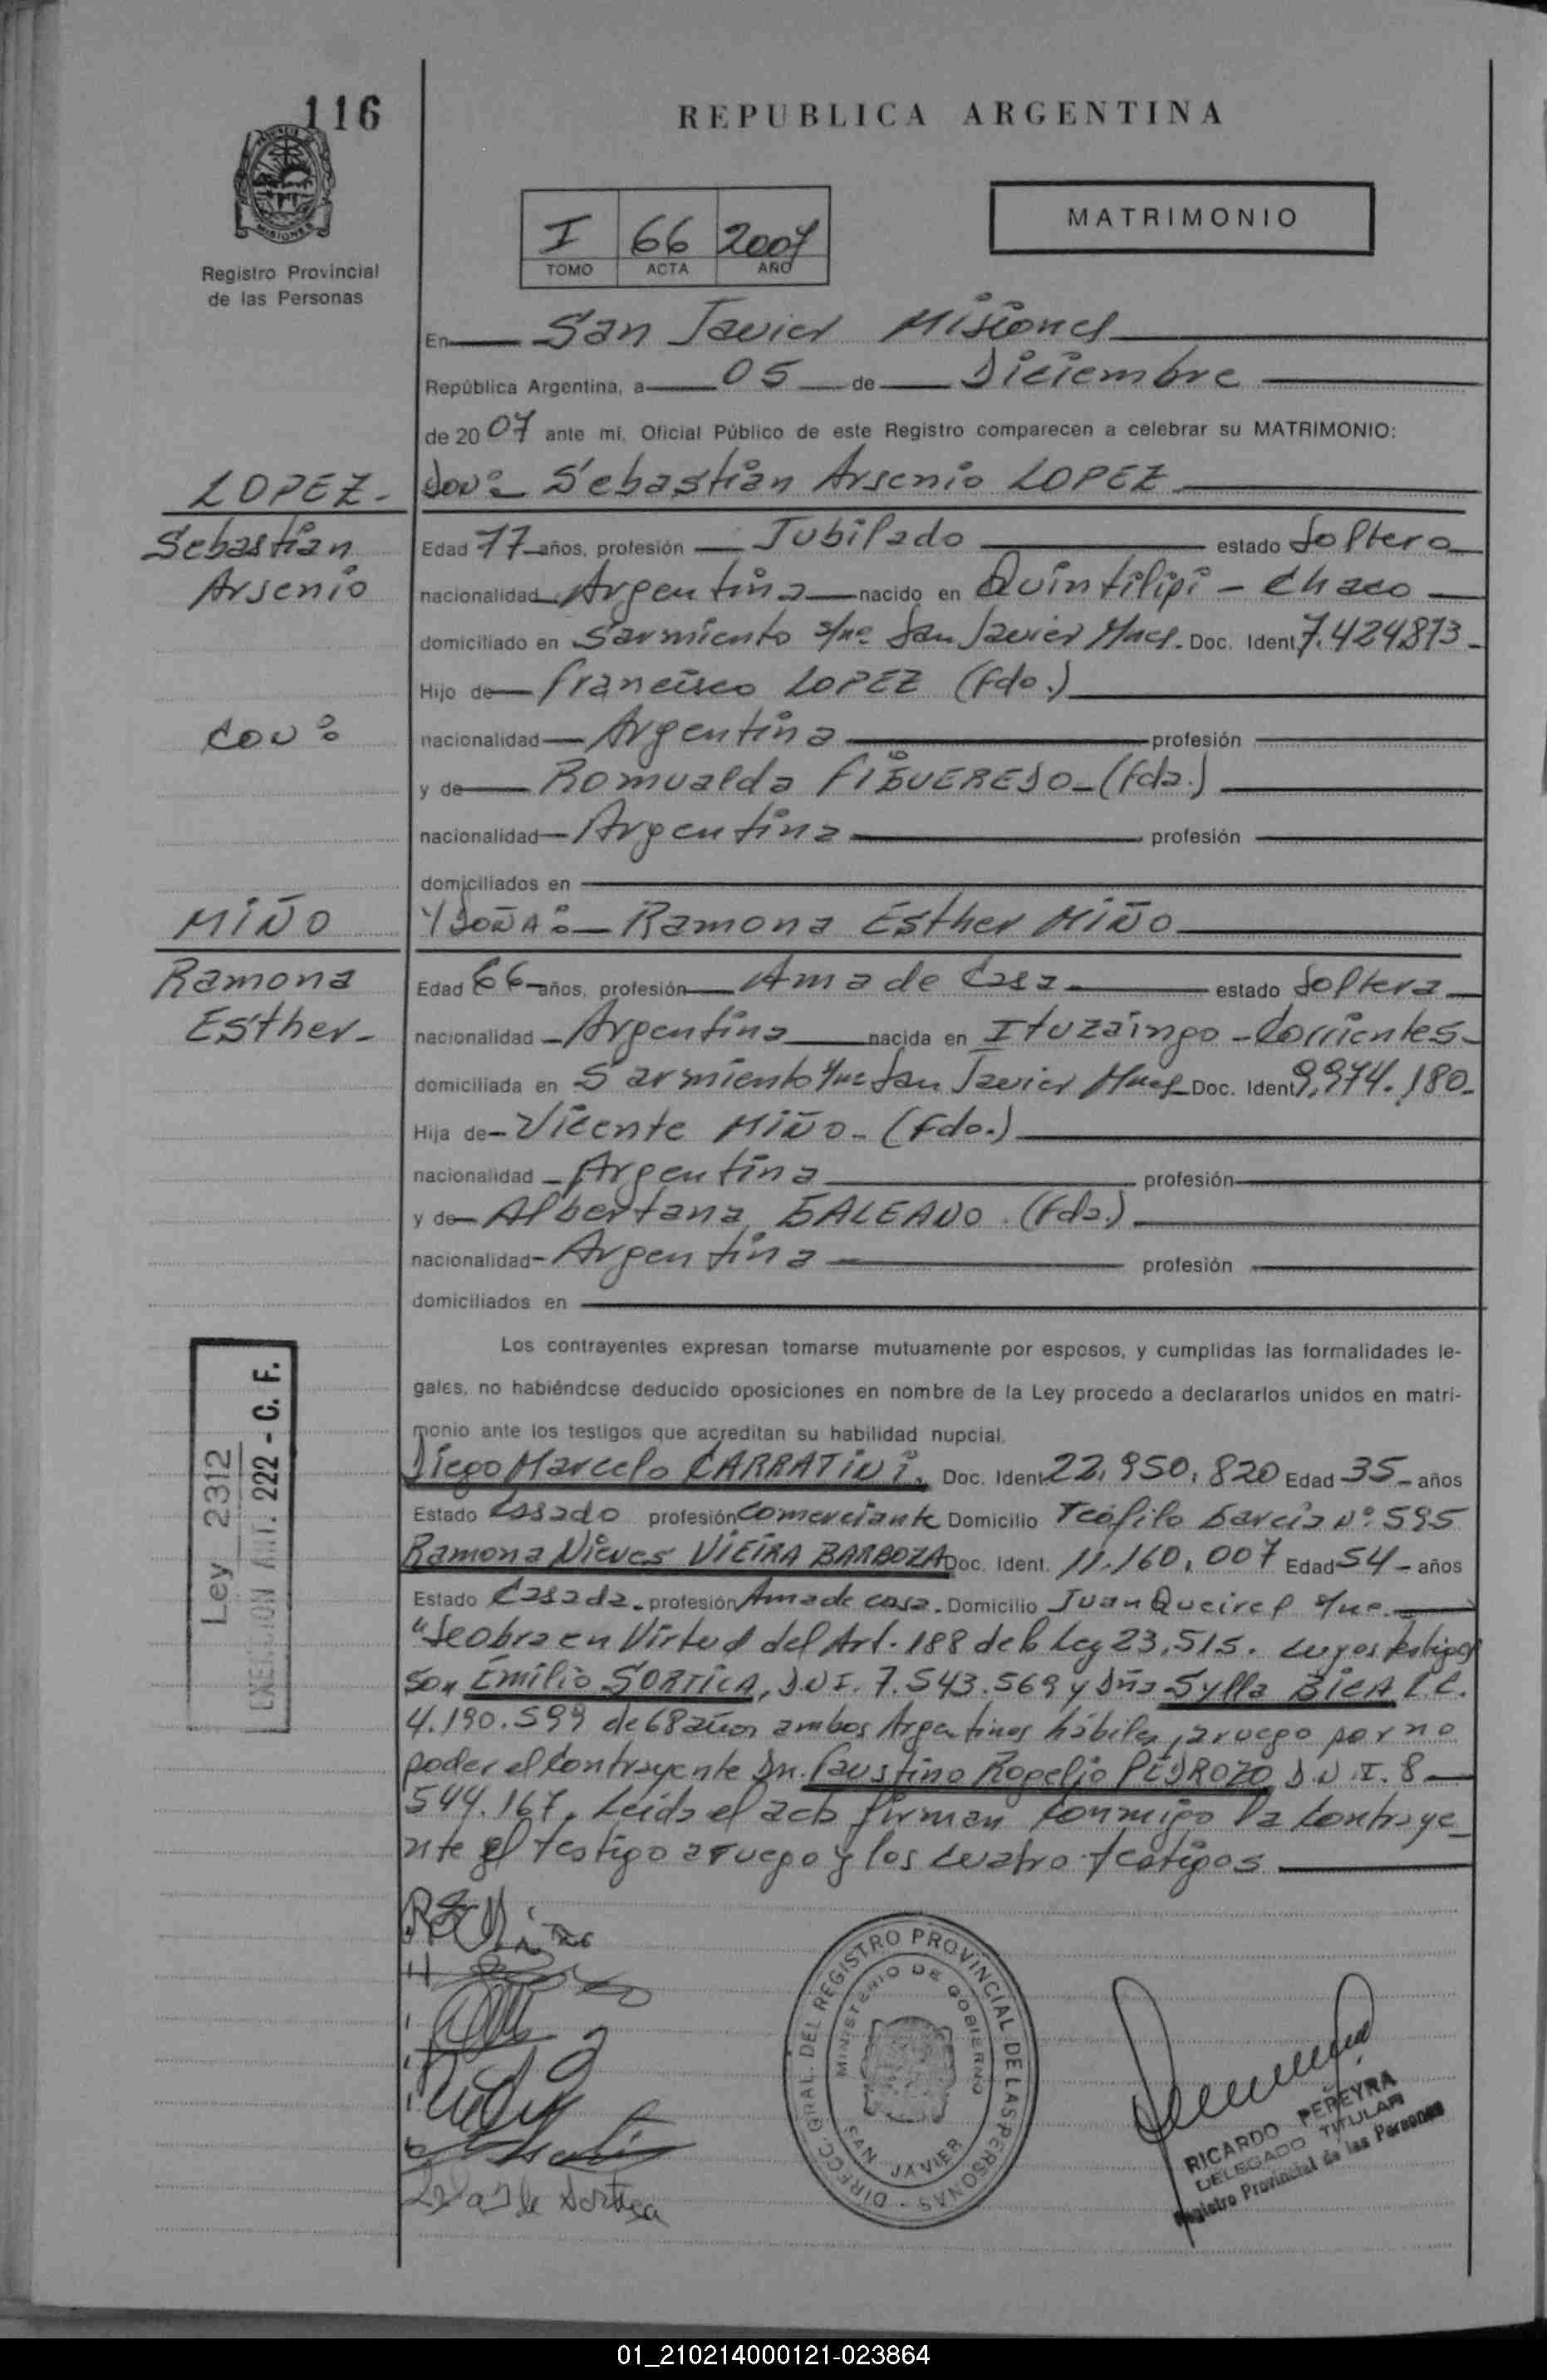 116
REPUBLICA ARGENTINA
MISIONES
Registro Provincial
de las Personas
I 66 2007
TOMO ACTA AÑO
MATRIMONIO
En San Javier Misiones
República Argentina, a 05 de Diciembre
de 2007 ante mí, Oficial Público de este Registro comparecen a celebrar su MATRIMONIO:
LOPEZ-
Sebastian
Arsenio
Con:
MIÑO
Ramona
Esther-
Don: Sebastian Arsenio LOPEZ
Edad 77 años, profesión Jubilado estado Soltero
nacionalidad Argentina nacido en Quintilipi - Chaco
domiciliado en Sarmiento s/nº San Javier Mnes. Doc. Ident 7.424.873-
Hijo de Francisco LOPEZ (Fdo.)
nacionalidad Argentina profesión
y de Romualda FIGUEREDO-(Fda.)
nacionalidad Argentina profesión
domiciliados en
Y DOÑA: Ramona Esther MIÑO
Edad 66 años, profesión Ama de Casa estado Soltera
nacionalidad Argentina nacida en Ituzaingo - Corrientes-
domiciliada en Sarmiento s/nº San Javier Mnes Doc. Ident 9.974.180-
Hija de Vicente MIÑO- (Fdo.)
nacionalidad Argentina profesión
y de Albertana GALEANO. (Fda.)
nacionalidad Argentina profesión
domiciliados en
Los contrayentes expresan tomarse mutuamente por esposos, y cumplidas las formalidades le-
gales, no habiéndose deducido oposiciones en nombre de la Ley procedo a declararlos unidos en matri-
monio ante los testigos que acreditan su habilidad nupcial.
Diego Marcelo CARBATINI. Doc. Ident. 22.950.820 Edad 35- años
Estado Casado profesión Comerciante Domicilio Teófilo Garcia Nº 595
Ramona Nieves VIEIRA BARBOZA Doc. Ident. 11.160.007 Edad 54- años
Estado Casada. profesión Ama de casa. Domicilio Juan Queirel s/nº.
"Se obra en Virtud del Art. 188 de la Ley 23.515. cuyos testigos
son Emilio SORTICA, DNI. 7.543.569 y Dña Sylla BICA L.C.
4.190.599 de 68 años ambos Argentinos hábiles, a ruego por no
poder el Contrayente Dn. Faustino Rogelio PEDROZO D.N.I. 8-
544.167. Leida el acta firman conmigo la contraye-
nte el testigo a ruego y los cuatro testigos
Ley 2312
EXENCION ART. 222 - C. F.
DIRECC. GRAL. DEL REGISTRO PROVINCIAL DE LAS PERSONAS
MINISTERIO DE GOBIERNO
SAN JAVIER
de Sortica
RICARDO PEREYRA
DELEGADO TITULAR
Registro Provincial de las Personas
01_210214000121-023864